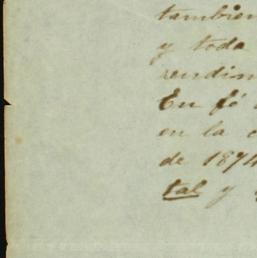 tambien
y toda
rendim
En fé
en la c
de 1874
tal y